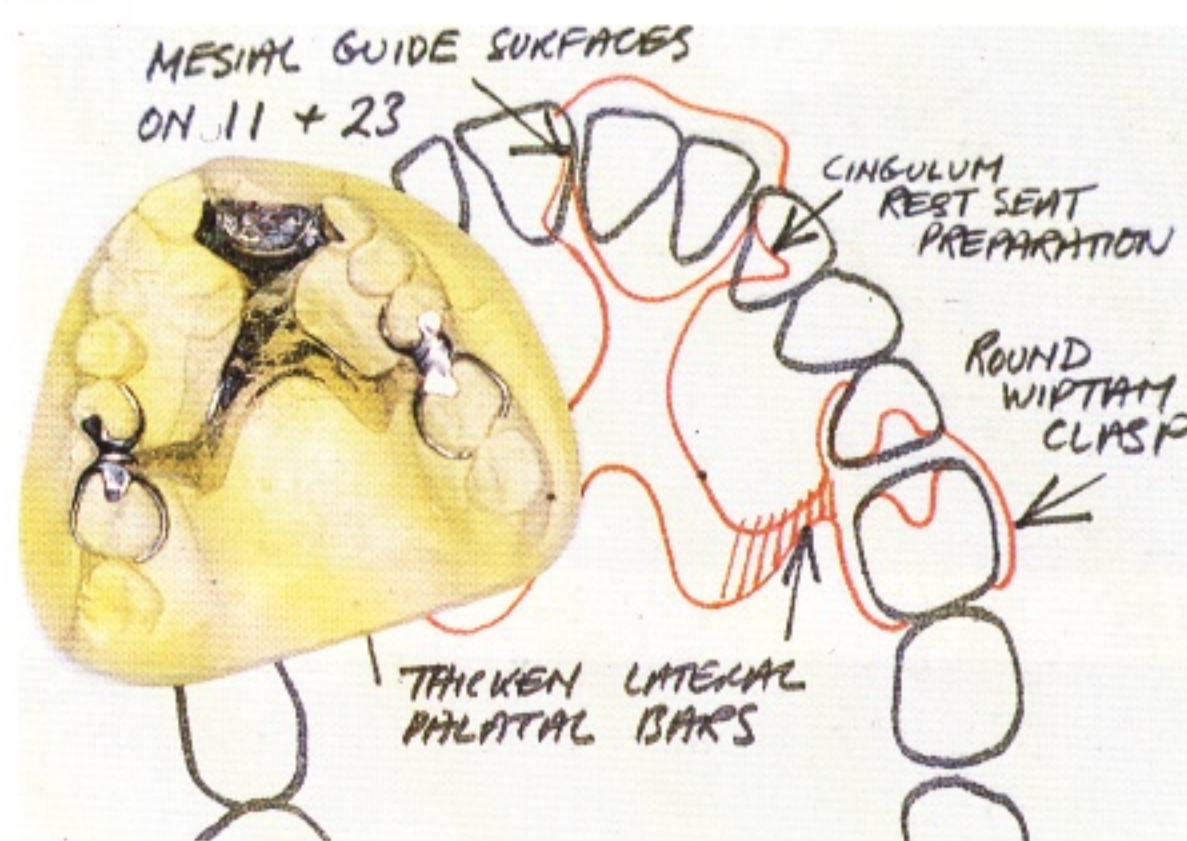 MESIAL GUIDE SURFACES
ON 11 + 23
CINGULUM
REST SEAT
PREPARATION
ROUND
WIPTAM
CLASP
THICKEN LATERAL
PALATAL BARS